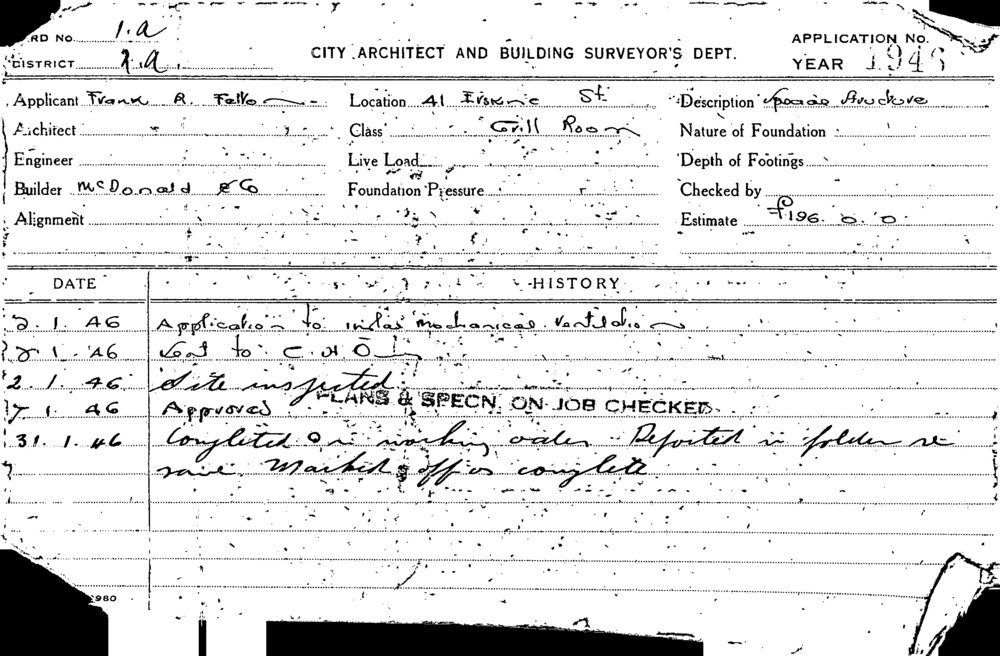 RD No. 1.a
DISTRICT 2.a.
CITY ARCHITECT AND BUILDING SURVEYOR'S DEPT.
APPLICATION No.
YEAR 1946
Applicant Frank R. Location 41 Erskine St. Description Structure
Architect Class Grill Room Nature of Foundation
Engineer Live Load Depth of Footings
Builder McDonald & Co Foundation Pressure Checked by
Alignment Estimate £196. 0. 0.
DATE HISTORY
2. 1. 46 Application to instal mechanical ventilation
2. 1. 46 Sent to C.H.O.
2. 1. 46 Site inspected
PLANS & SPECN. ON JOB CHECKED
7. 1. 46 Approved
31. 1. 46 Completed & in working order. Reported in folder re
same. Marked off as complete.